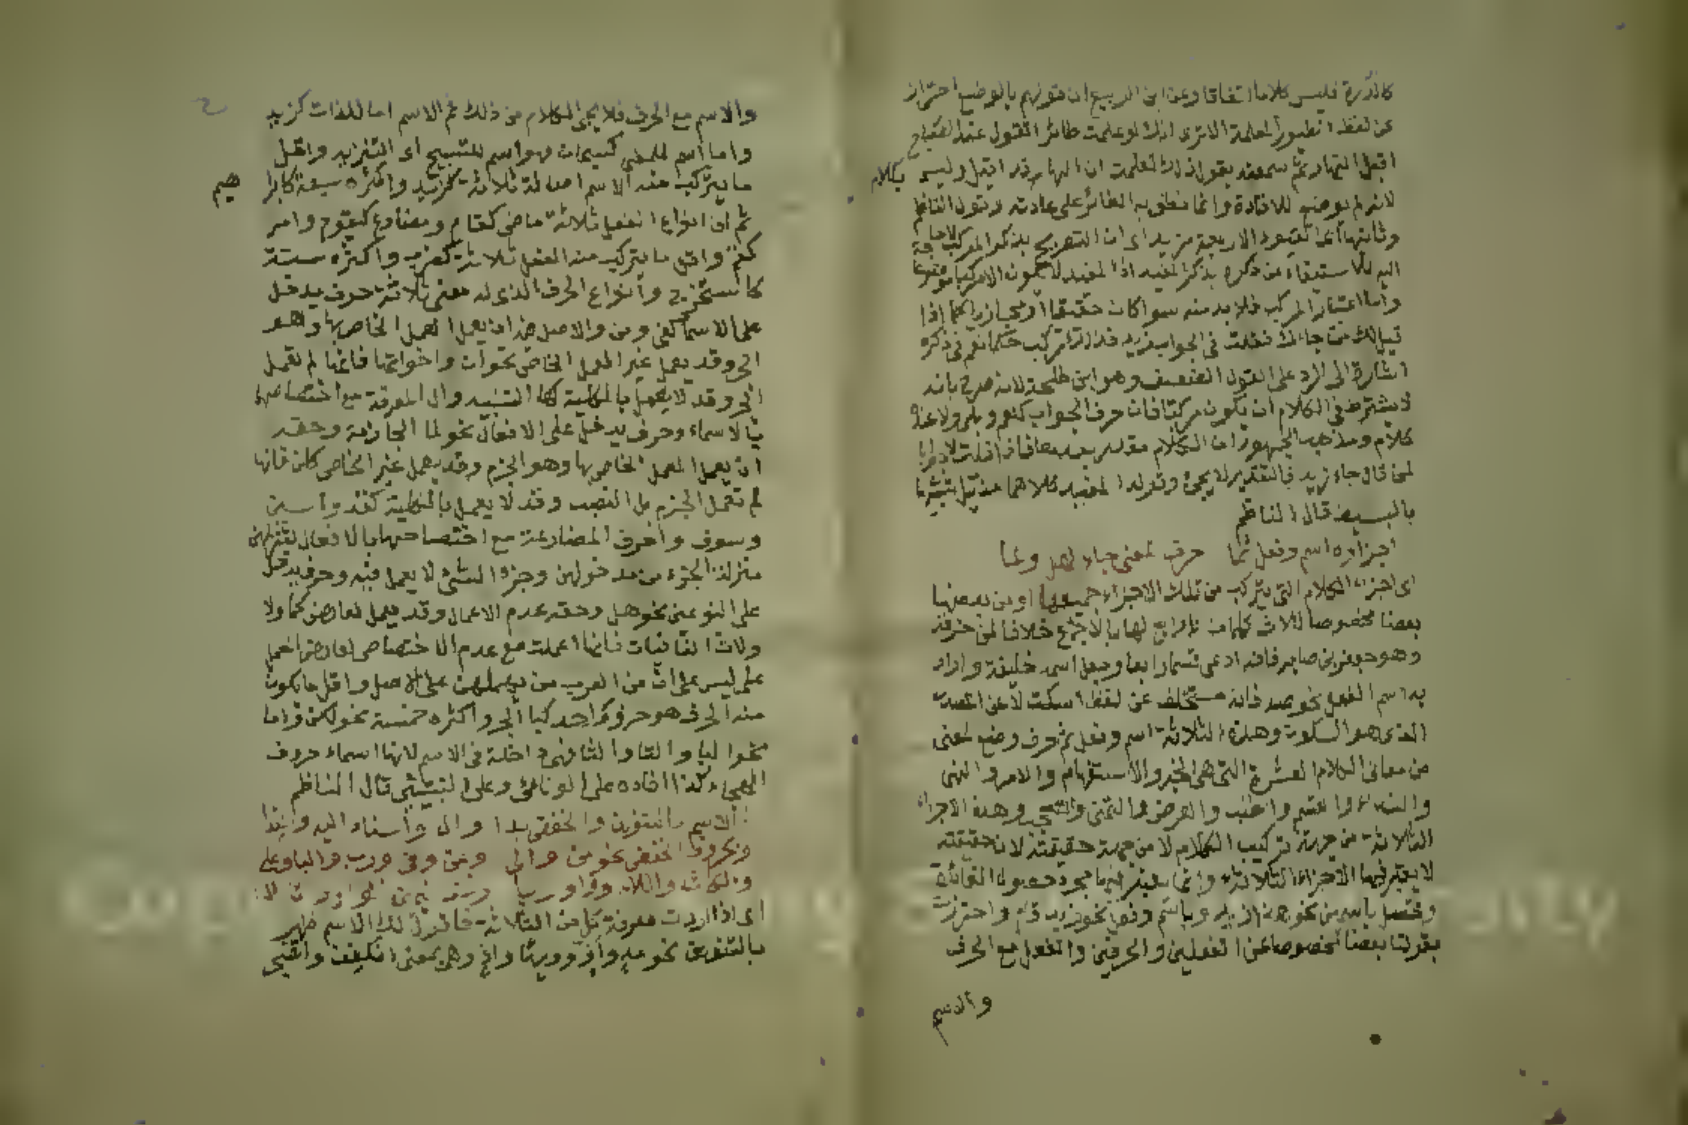 كالذرة فليس كلاما اتفاقا وعن ابن الربيع ان قولهم بالوضع احتراز
عن لفظ الطيور المعلمة الا ترى انك لو علمت طائرا القول عند الصباح
اقبل النهار ثم سمعته يقول ذلك لعلمت ان النهار قد اقبل وليس بكلام
لانه لم يوضع للافادة وانما نطق به الطائر على عادته وقول الناظم
وثانيها اى القيود الاربعة مزيد اى ان التصريح بذكر المركب
اليه للاستيفاء من ذكره بذكر المفيد اذ المفيد لا يكون الا مركبا
واما اعتبار المركب فلا بد منه سوا كان حقيقا او مجازا كما اذا
قيل لك من جاءك فقلت فى الجواب زيد فذلك تركيب حكما نعم فى ذكره
اشارة الى الرد على القول الضعيف وهو ابن طلحة لانه صرح بانه
لا يشترط فى الكلام ان يكون مركبا فان حرف الجواب كنعم وبلى ولا عنده
كلام ومذهب الجمهور ان الكلام مقدر بعدها فاذا قلت لا
لمن قال جاء زيد فالتقدير لا يجئ وقوله المفيد كلاهما
بالبسيط قال الناظم
اجزاوه اسم وفعل ثما حرف لمعنى جاء لهل وما
اى اجزاء الكلام التى يتركب من تلك الاجزاء جميعها او من بعضها
بعضا مخصوصا ثلاث كلمات لا رابع لها بالاجماع خلافا لمن خرقه
وهو جعفر بن صابر فانه ادعى قسما رابعا وجعل اسمه خليفة واراد
به اسم الفعل نحو صه فانه خلف عن لفظ اسكت لا عن المصدر
الذى هو السكوت وهذه الثلاثة اسم وفعل ثم حرف وضع لمعنى
من معانى الكلام العشرة التى هى الخبر والاستفهام والامر والنهى
والنداء والقسم والطلب والعرض والتمنى والتعجب وهذه الاجزاء
الثلاثة من جهة تركيب الكلام لا من جهة حقيقته لان حقيقته
لا يعتبر فيها الاجزاء الثلاثة وانما يعتبر فيها مجرد حصول الفائدة
وتحصل باسمين نحو هذا زيد وباسم وفعل نحو زيد قام واحترزت
بقولنا بعضا مخصوصا عن الفعلين والحرفين والفعل مع الحرف
والاسم
والاسم مع الحرف فلا يجئ الكلام من ذلك ثم الاسم اما للذات كزيد
واما اسم للمعنى كسبحان وهو اسم للتسبيح اى التنزيه واقل
ما يتركب منه الاسم اصالة ثلاثة كزيد واكثره سبعة
ثم ان انواع الفعل ثلاثة ماضى كقام ومضارع كيقوم وامر
كقم واقل ما يتركب منه الفعل ثلاثة كضرب واكثره ستة
كاستخرج وانواع الحرف الذى له معنى ثلاثة حرف يدخل
على الاسما كفى ومن والاصل هذا ان يعمل العمل الخاص بها وهو
الجر وقد يعمل غير العمل الخاص نحو ان واخواتها فانها لم تعمل
الجر وقد لا يعمل بالكلية كها التنبيه وال المعرفة مع اختصاصها
بالاسماء وحرف يدخل على الافعال نحو لما الجازمة وحقه
ان يعمل العمل الخاص بها وهو الجزم وقد يعمل غير الخاص كلن فانها
لم تعمل الجزم بل النصب وقد لا يعمل بالكلية كقد والسين
وسوف واحرف المضارعة مع اختصاصها بالافعال لتنزلهن
منزلة الجزء من مدخولهن وجزء الشئ لا يعمل فيه وحرف يدخل
على النوعين نحو هل وحقه عدم الاعمال وقد يعمل لعارض كما ولا
ولات النافيات فانها اعملت مع عدم الاختصاص لعارض الحمل
على ليس على ان من العرب من يهملهن على الاصل واقل ما يكون
منه الحرف هو حرف واحد كبا الجر واكثره خمسة نحو لكن واما
نحو البا والتا والثا فهى داخلة فى الاسم لانها اسماء حروف
الهجاء كذا افاده على الونائى وعلى النبتيتى قال الناظم
الاسم بالتنوين والخفض بدا وال واسناد اليه وابتدا
وبحروف الخفض نحو من والى وعن وفى ورب والبا وعلى
والكاف واللام وواو
اى اذا اردت معرفة كل من الثلاثة فاقول لك الاسم ظهر
بالتنوين نحو صه واف ورويدا واخ وهى بمعنى